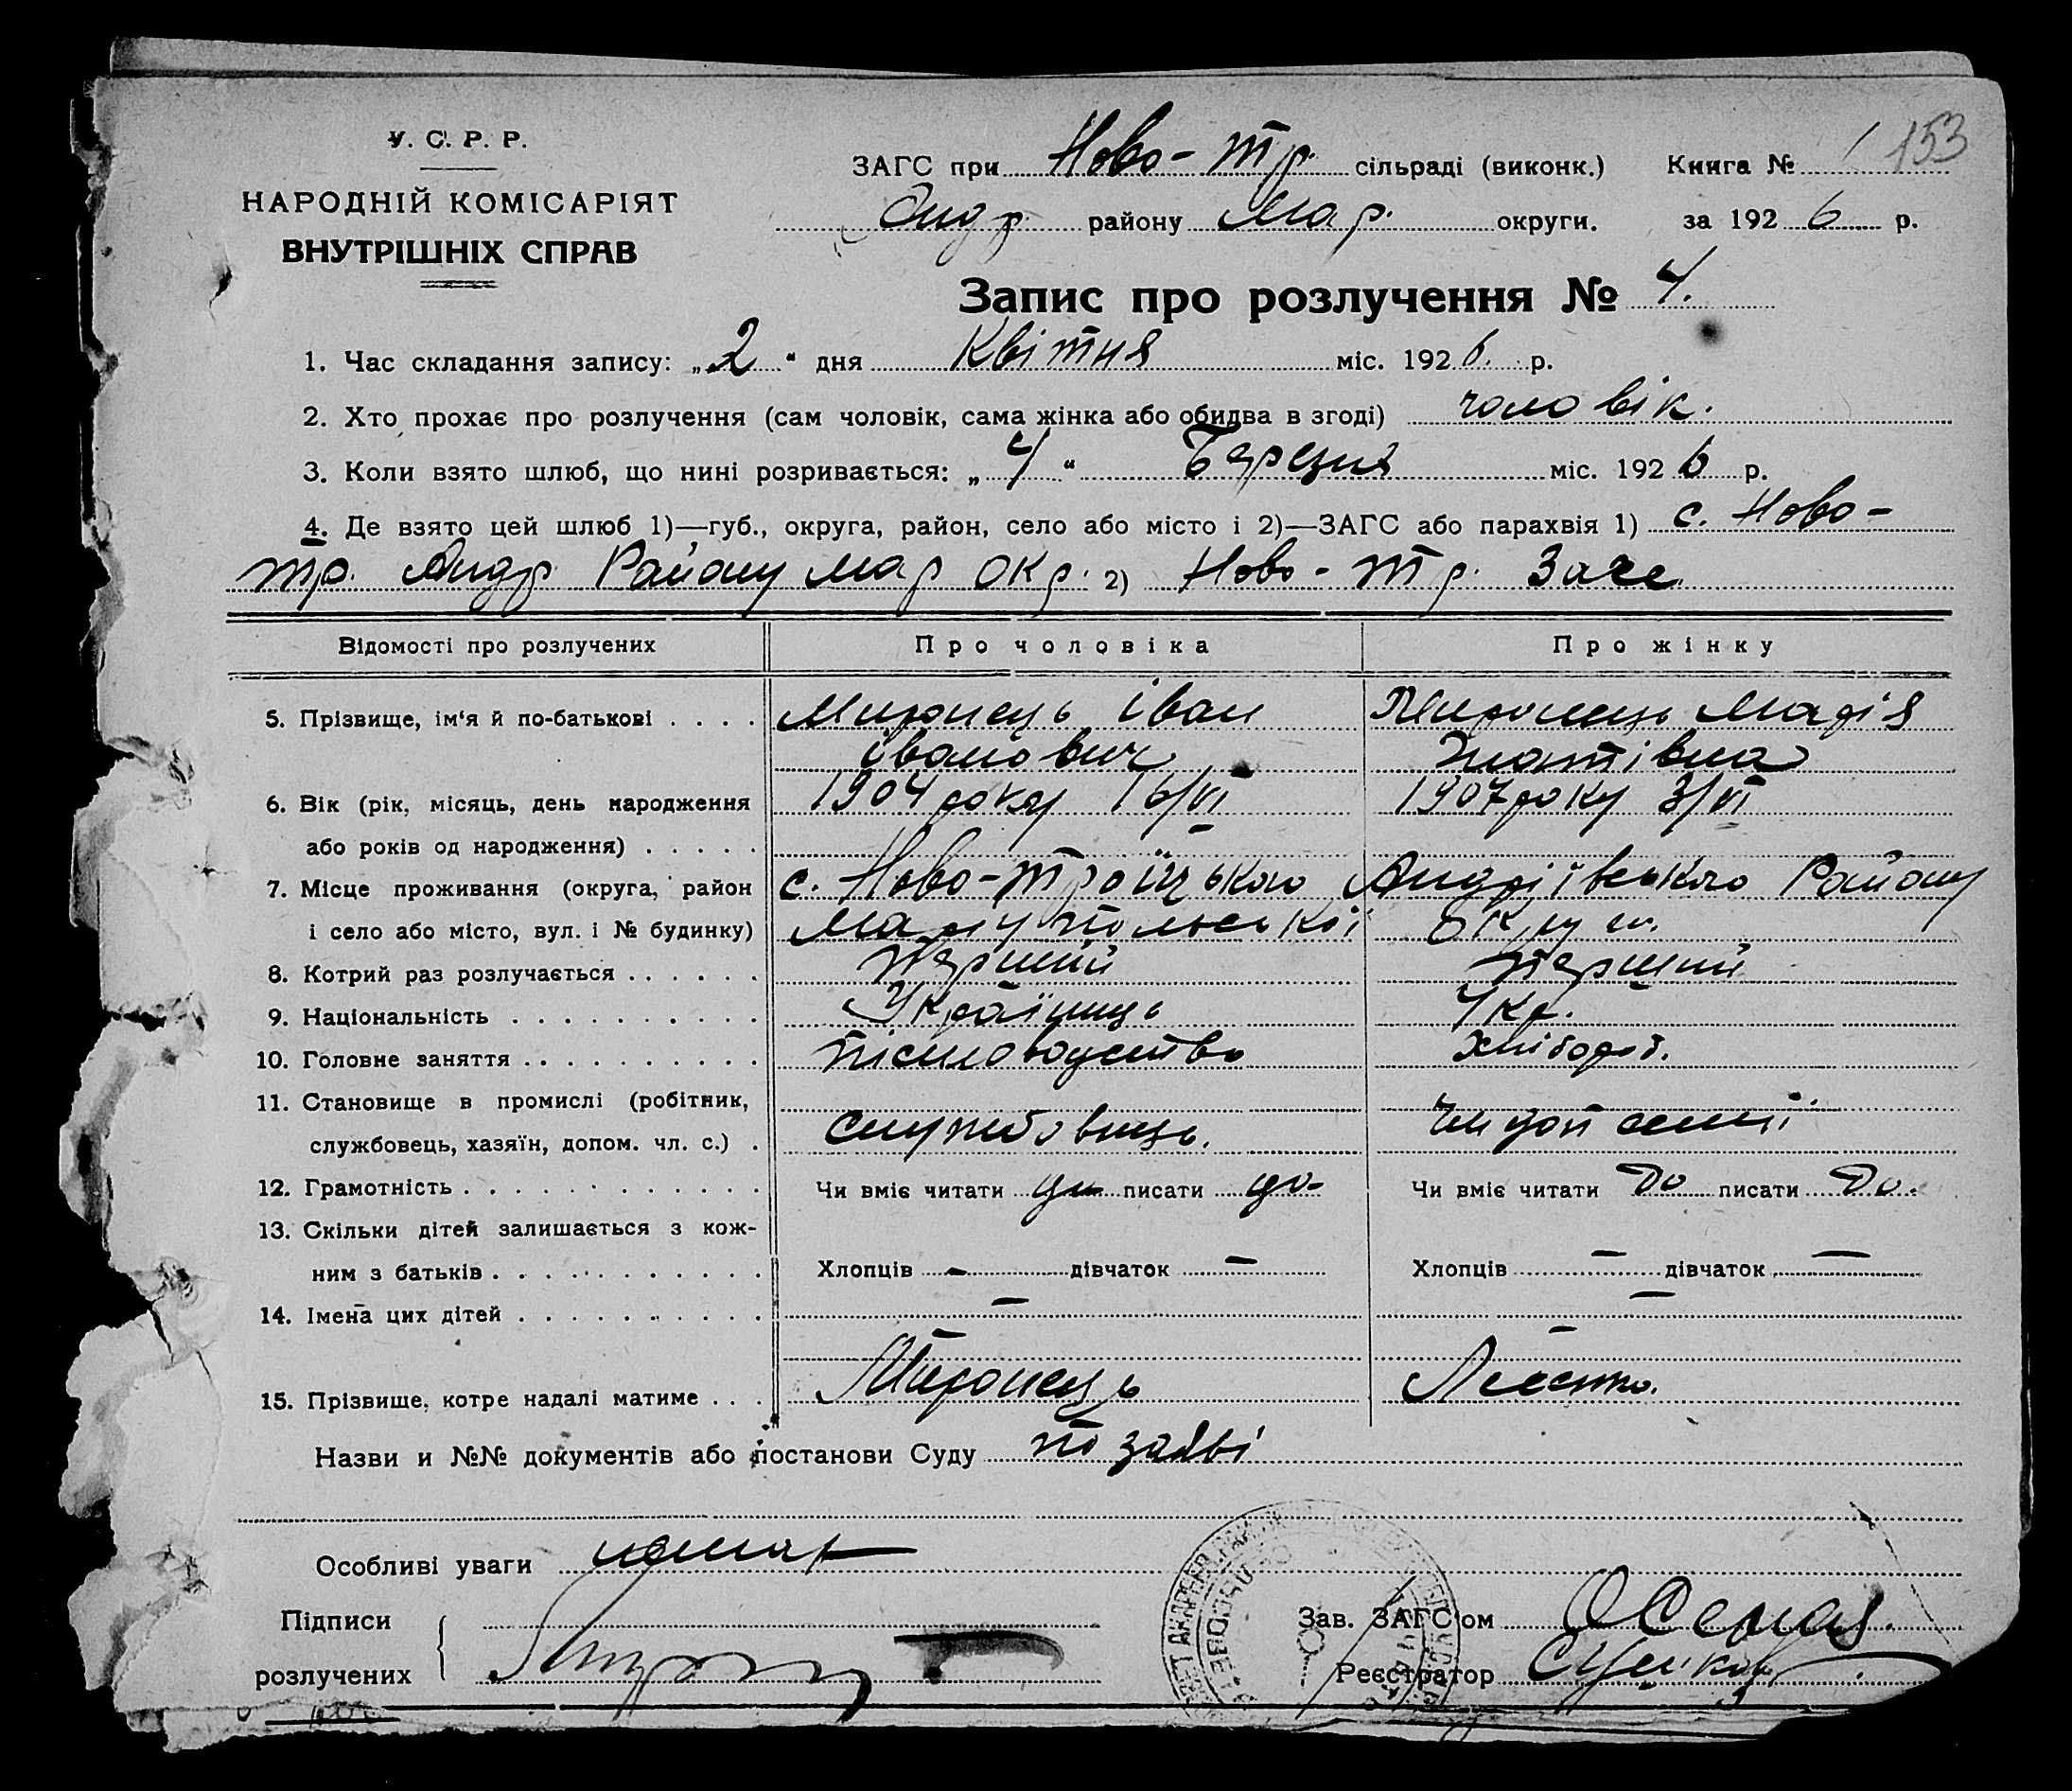 У. С. Р. Р.
НАРОДНІЙ КОМІСАРІЯТ
ВНУТРІШНІХ СПРАВ
ЗАГС при Ново-Тр. сільраді (виконк.) Книга № 1 153
Андр. району Мар. округи. за 1926 р.
Запис про розлучення № 4.
1. Час складання запису: „2“ дня Квітня міс. 1926. р.
2. Хто прохає про розлучення (сам чоловік, сама жінка або обидва в згоді) чоловік.
3. Коли взято шлюб, що нині розривається: „4“ Березня міс. 1926 р.
4. Де взято цей шлюб 1)—губ., округа, район, село або місто і 2)—ЗАГС або парахвія 1) с. Ново-
Тр. Андр. Району Мар окр. 2) Ново-Тр. Загс.
Відомості про розлучених Про чоловіка Про жінку
5. Прізвище, ім‘я й по-батькові Миронець Іван Миронець Марія
Іванович
6. Вік (рік, місяць, день народження 1904 року 16/VI 1907 року 3/VI
або років од народження)
7. Місце проживання (округа, район с. Ново-Троїцького Андріївського Району
і село або місто, вул. і № будинку) Маріупольської Округи.
8. Котрий раз розлучається перший перший
9. Національність Українець Укр.
10. Головне заняття письмоводство хлібороб.
11. Становище в промислі (робітник,
службовець, хазяїн, допом. чл. с.) службовець. семії
12. Грамотність Чи вміє читати да писати да Чи вміє читати да писати да.
13. Скільки дітей залишається з кож-
ним з батьків Хлопців — дівчаток — Хлопців — дівчаток —
14. Імена цих дітей — —
15. Прізвище, котре надалі матиме Миронець
Назви и №№ документів або постанови Суду по заяві
Особливі уваги немає
Підписи
розлучених
Зав. ЗАГС‘ом
Реєстратор